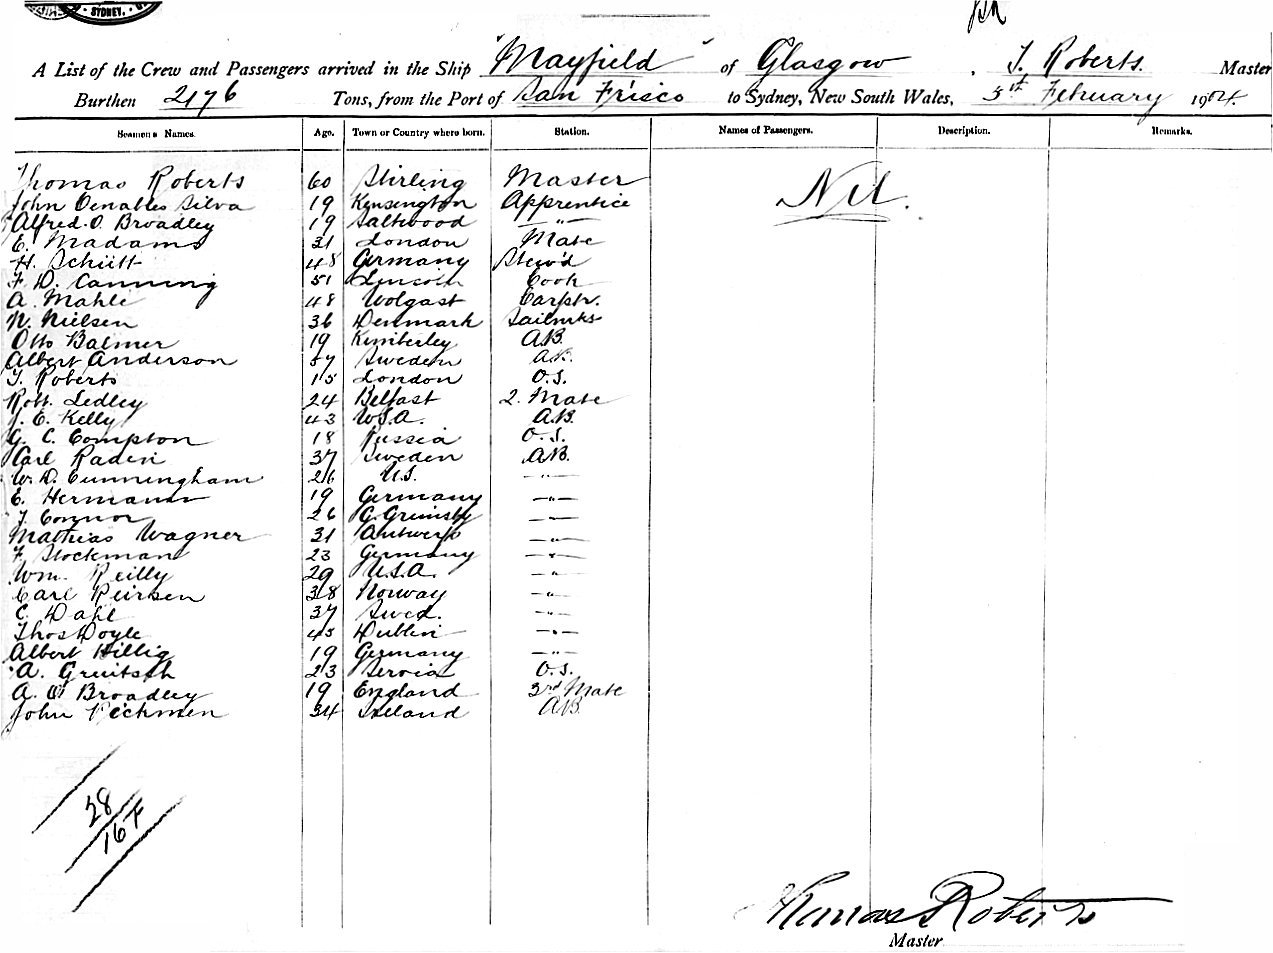 SYDNEY.
A List of the Crew and Passengers arrived in the Ship "Mayfield" of Glasgow, T. Roberts. Master
Burthen 2176 Tons, from the Port of San Frisco to Sydney, New South Wales, 5th February 1904.
Seamens Names. Age. Town or Country where born. Station. Names of Passengers. Description. Remarks.
Thomas Roberts 60 Stirling Master Nil.
John Venables Silva 19 Kensington Apprentice
Alfred. O. Broadley 19 Saltwood —"—
E. Madams 31 London Mate
H. Schütt 48 Germany Stew'd
F. D. Canning 51 Lincoln Cook
A. Mahle 48 Wolgast Carptr.
N. Nielsen 36 Denmark Sailmks
Otto Balmer 19 Kimberley A.B.
Albert Anderson 57 Sweden A.B.
T. Roberts 15 London O.S.
Robt. Ledley 24 Belfast 2. Mate
J. E. Kelly 43 U.S.A. A.B.
G. C. Compton 18 Russia O.S.
Carl Raden 37 Sweden A.B.
W. D. Cunningham 26 U.S. —"—
E. Hermann 19 Germany —"—
T. Connor 26 G. Grimsby —"—
Mathias Wagner 31 Antwerp —"—
F. Stockman 23 Germany —"—
Wm. Reilly 29 U.S.A. —"—
Carl Peirsen 38 Norway —"—
C. Dahl 37 Swed. —"—
Thos Doyle 45 Dublin —"—
Albert Hillig 19 Germany —"—
A. Gruitsch 23 Servia O.S.
A. O. Broadley 19 England 3rd Mate
John 34 Ireland A.B.
28
16 F
Thomas Roberts
Master